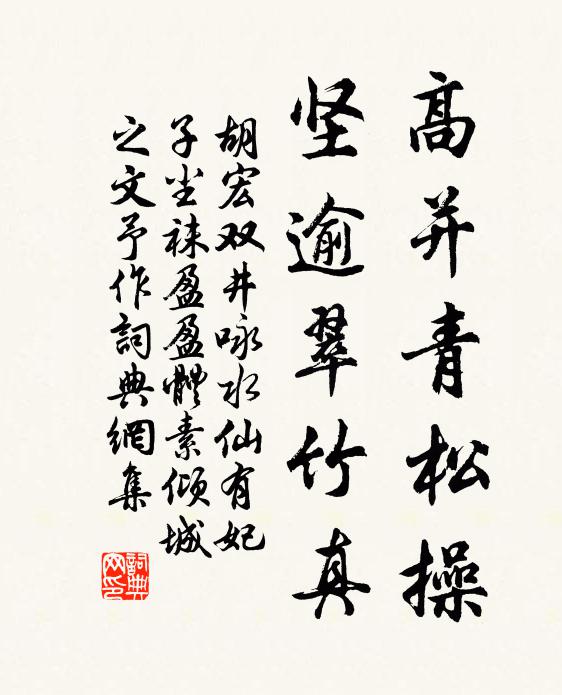 高并青松操
坚逾翠竹真
胡宏双井咏水仙有妃
子尘袜盈盈體素倾城
之文予作詞典網集
詞典网印